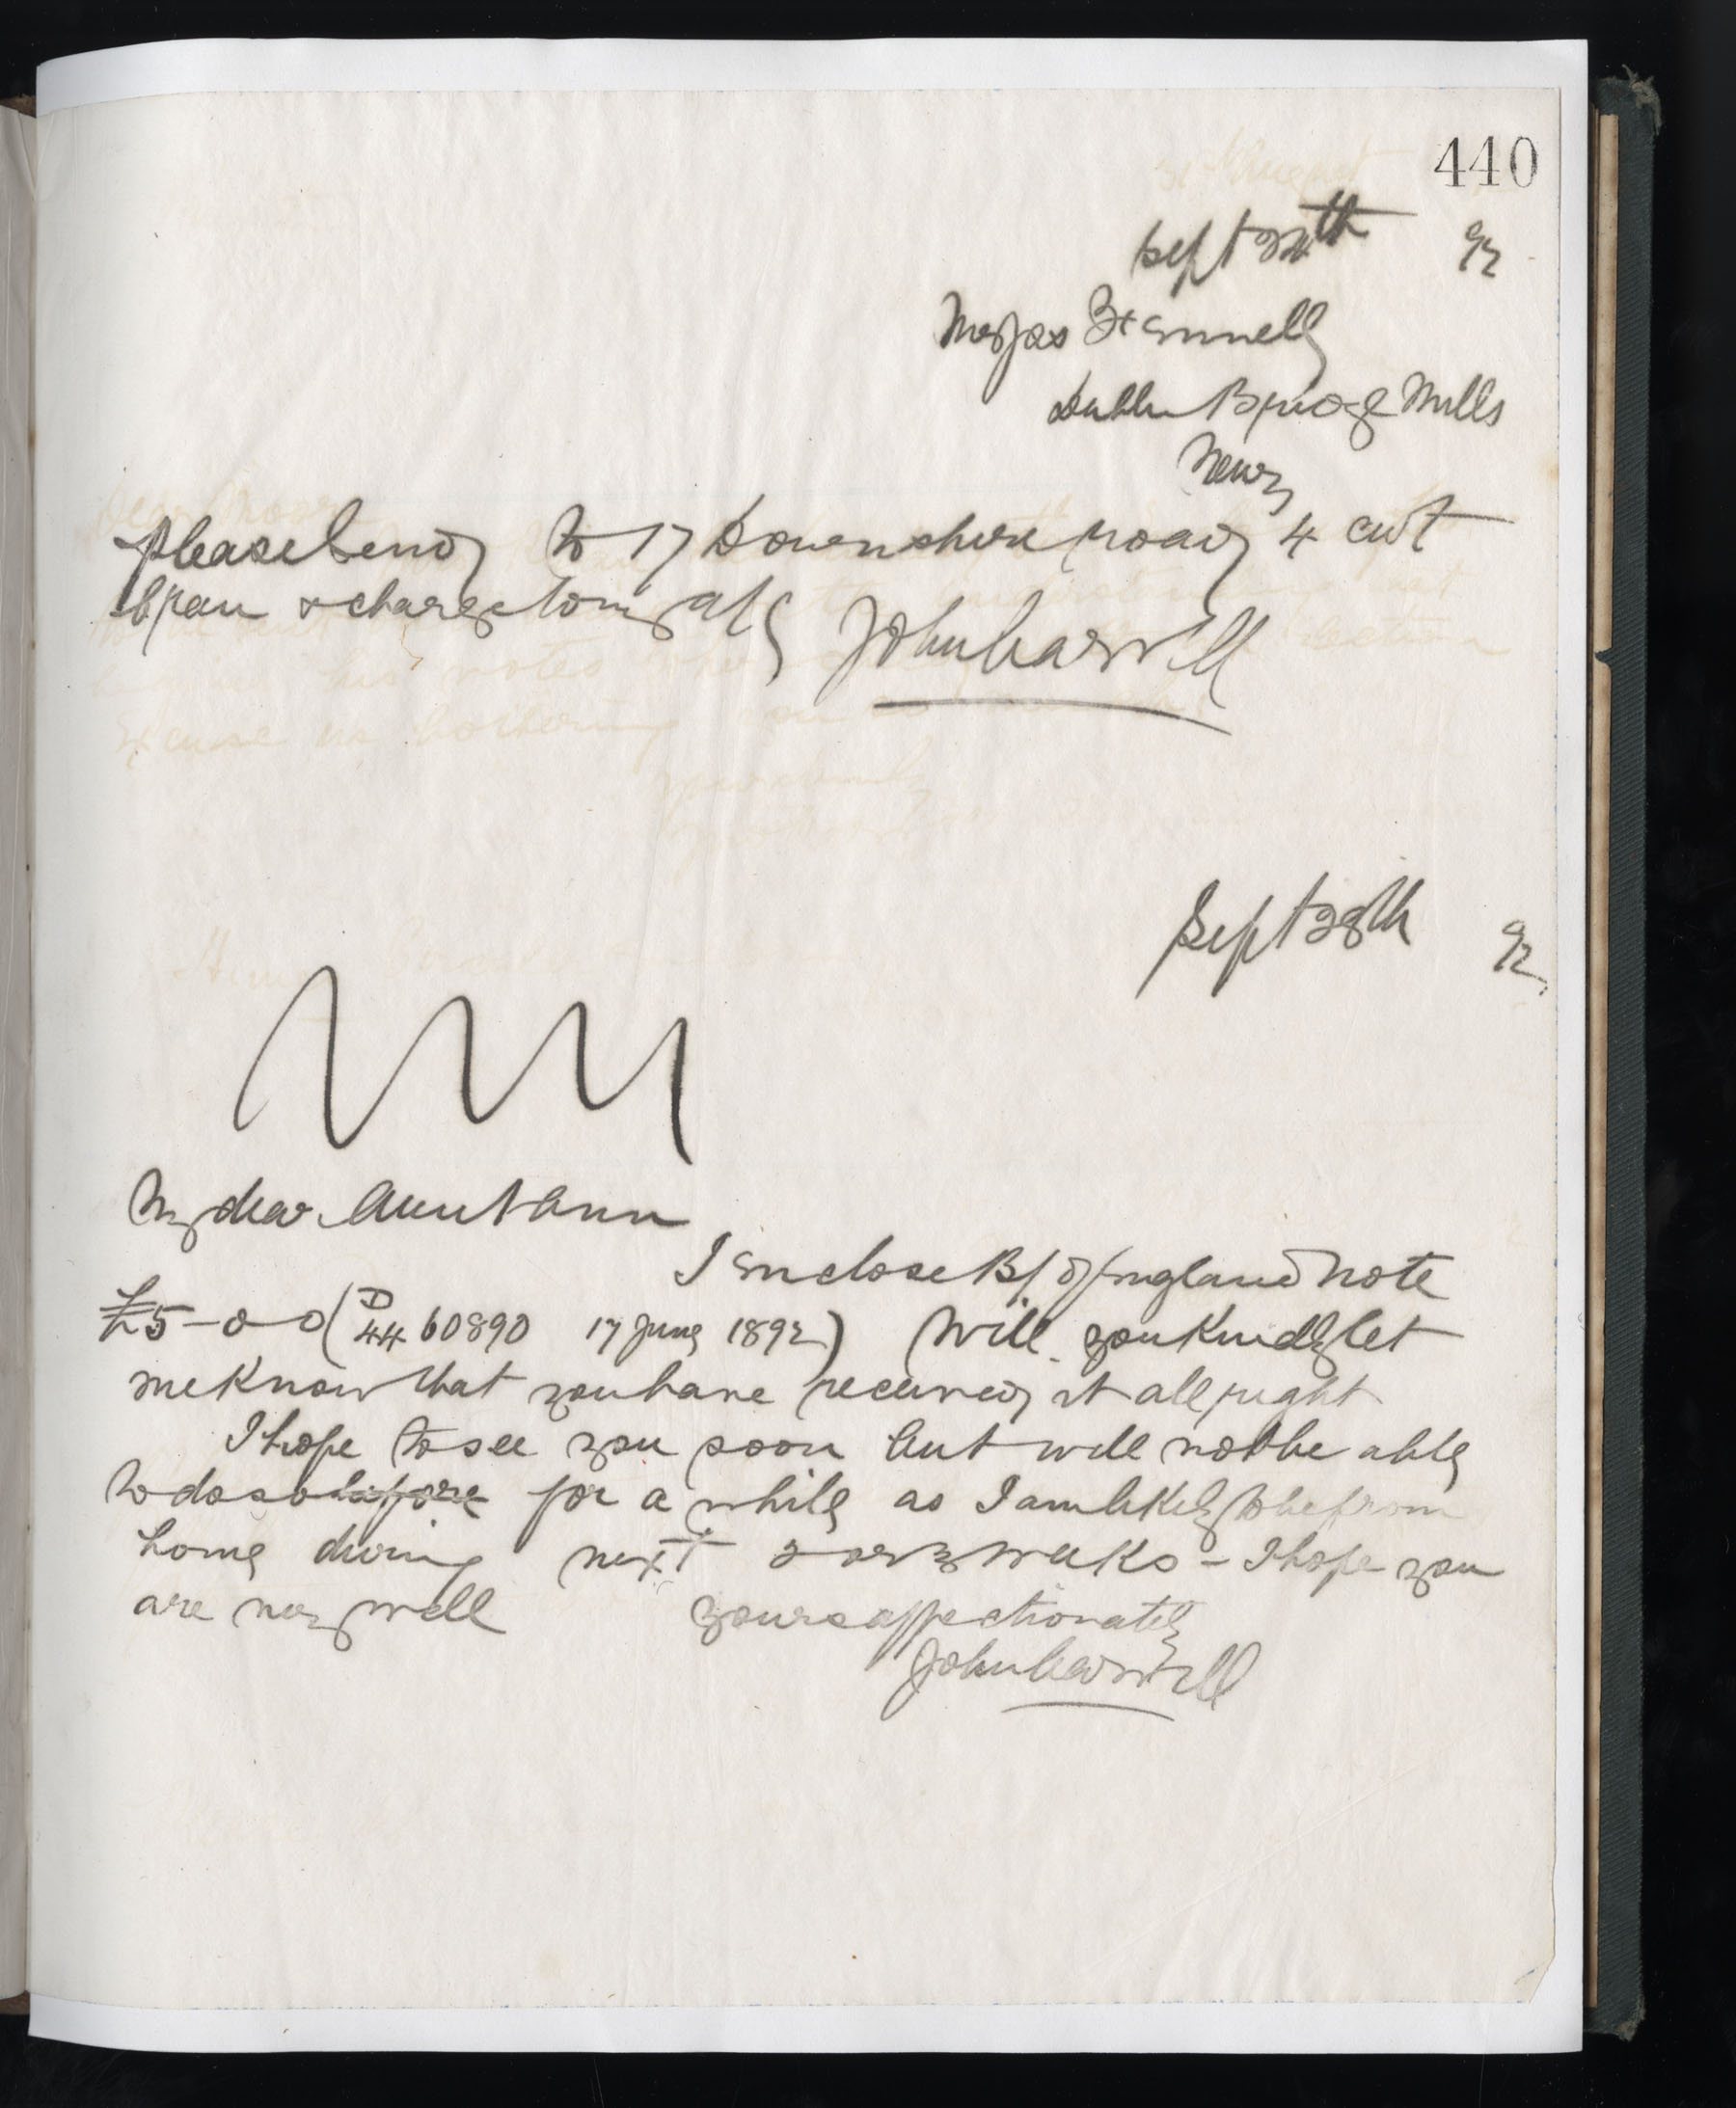 440
Sept 28th 92
Messrs Fennell
Dublin Bridge Mills
Newry
Please send to 17 Downshire road 4 cwt
bran & charge to my a/c John Carvill
Sept 28th 92
My dear Aunt Ann
I enclose B/ of England note
£5-0-0 (D/44 60890 17 June 1892) Will you kindly let
me know that you have received it all right
I hope to see you soon but will not be able
to do so before for a while as I am likely to be from
home during next 2 or 3 weeks - I hope you
are very well yours affectionately
John Carvill